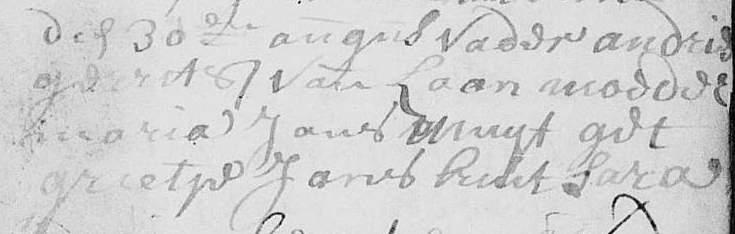 den 30 den augus vader andries
geerts van Laan moeder
maria Jans muyt get
grietje Jans kint Sara